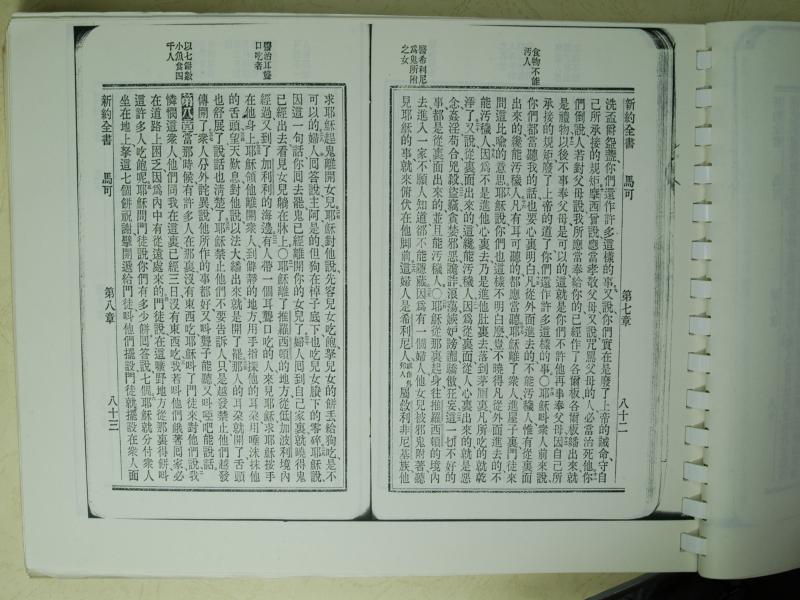 新約全書 馬可 第七章 八十二
食物不能
汚人
醫希利尼
爲鬼所附
之女
洗盂爵盤盞、你們還作許多這樣的事、又說、你們實在是廢了上帝的誡命、守自
己所承接的規矩、摩西曾說、應當孝敬父母、又說、咒罵父母的人、必當治死他、你
們倒說、人若對父母說、我所應當奉給你的、已經作了各爾板、各爾板繙出來、就
是禮物、以後不事奉父母、是可以的、這就是你們不許他再事奉父母、因自己所
承接的規矩、廢了上帝的道了、你們還作許多這樣的事○耶穌呌衆人前來說、
你們都當聽我的話、也要心裏明白、凡從外面進去的、不能汚穢人、惟有從裏面
出來的、纔能汚穢人、凡有耳可聽的、都應當聽、耶穌離了衆人、進屋子裏、門徒來
問這比喻的意思、耶穌說、你們也這樣不明白麽、豈不曉得凡從外面進去的、不
能汚穢人、因爲不是進他心裏去、乃是進他肚裏去、落到茅厠裏、凡所吃的就乾
淨了、又說、從裏面出來的、這纔能汚穢人、因爲從裏面、從人心裏出來的、就是惡
念、姦淫、苟合、兇殺、盜竊、貪婪、邪惡、詭詐、浪蕩、嫉妒、謗讟、驕傲、狂妄、這一切不好的
事、都是從裏面出來的、並且能汚穢人、○耶穌從那裏起身、往推羅西頓的境內
去、進入一家、不願人知道、卻不能隱藏、因爲有一個婦人、他女兒被邪鬼附著、聽
見耶穌的事、就來俯伏在他脚前、這婦人是希利尼人、屬敘利非尼基族、他
醫治耳聾
口吃者
以七餅數
小魚食四
千人
求耶穌趕鬼離開女兒、耶穌對他說、先容兒女吃飽、拏兒女的餅丟給狗吃、是不
可以的、婦人回答說、主阿、是的、但狗在棹子底下、也吃兒女賸下的零碎、耶穌說、
因這一句話、你回去罷、鬼已經離開你的女兒了、婦人回到自己家裏、就曉得鬼
已經出去、看見女兒躺在牀上、○耶穌離了推羅西頓的地方、從低加波利境內
經過、又到了加利利的海邊、有人帶一個耳聾口吃的人、來見耶穌、求耶穌按手
在他身上、耶穌領他離開衆人、到僻靜的地方、用手指探他的耳朶、用唾沫抹他
的舌頭、望天歎息、對他說、以法大、繙出來就是開了罷、那人的耳朶就開了、舌頭
也舒展了、說話也清楚了、耶穌禁止他們、不要告訴人、只是越發禁止、他們越發
傳開了、衆人分外詫異說、他所作的事都好、又呌聾子能聽、又呌啞吧能說話、
第八章 當那時候、有許多人在那裏、沒有東西吃、耶穌呌了門徒來、對他們說、我
憐憫這衆人、他們同我在這裏已經三日、沒有東西吃、我若呌他們餓著回家、必
在道路上困乏、因爲內中有從遠處來的、門徒說、在這曠野地方、從那裏得餅、呌
這許多人吃飽呢、耶穌問門徒說、你們有多少餅、回答說、七個、耶穌就分付衆人
坐在地上、拏這七個餅祝謝、擘開、遞給門徒、呌他們擺設、門徒就擺設在衆人面
新約全書 馬可 第八章 八十三